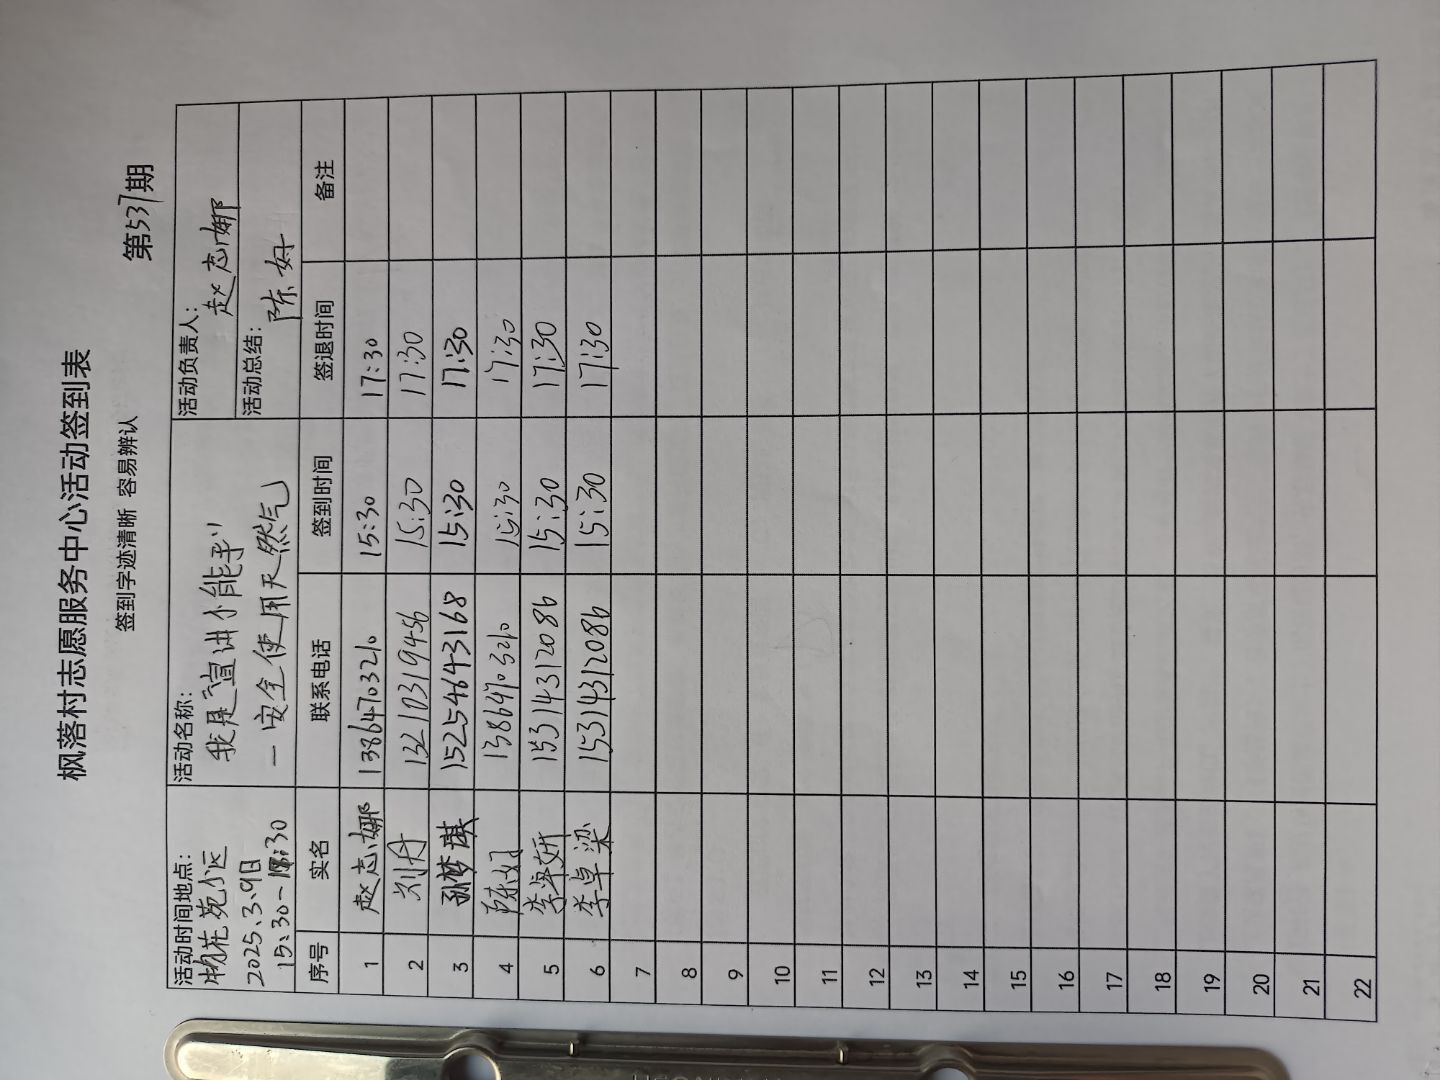 枫落村志愿服务中心活动签到表
签到字迹清晰 容易辨认
第537期
活动时间地点:
物花苑小区
2025.3.9日
15:30-17:30
活动名称:
我是"宣讲小能手"
—安全使用天然气
活动负责人:
赵志娜
活动总结:
陈好
序号 实名 联系电话 签到时间 签退时间 备注
1 赵志娜 13864703210 15:30 17:30
2 刘丹 13210319456 15:30 17:30
3 孙梦琪 15254643168 15:30 17:30
4 陈好 13864703210 15:30 17:30
5 李卓妍 15314312086 15:30 17:30
6 李卓梁 15314312086 15:30 17:30
7
8
9
10
11
12
13
14
15
16
17
18
19
20
21
22